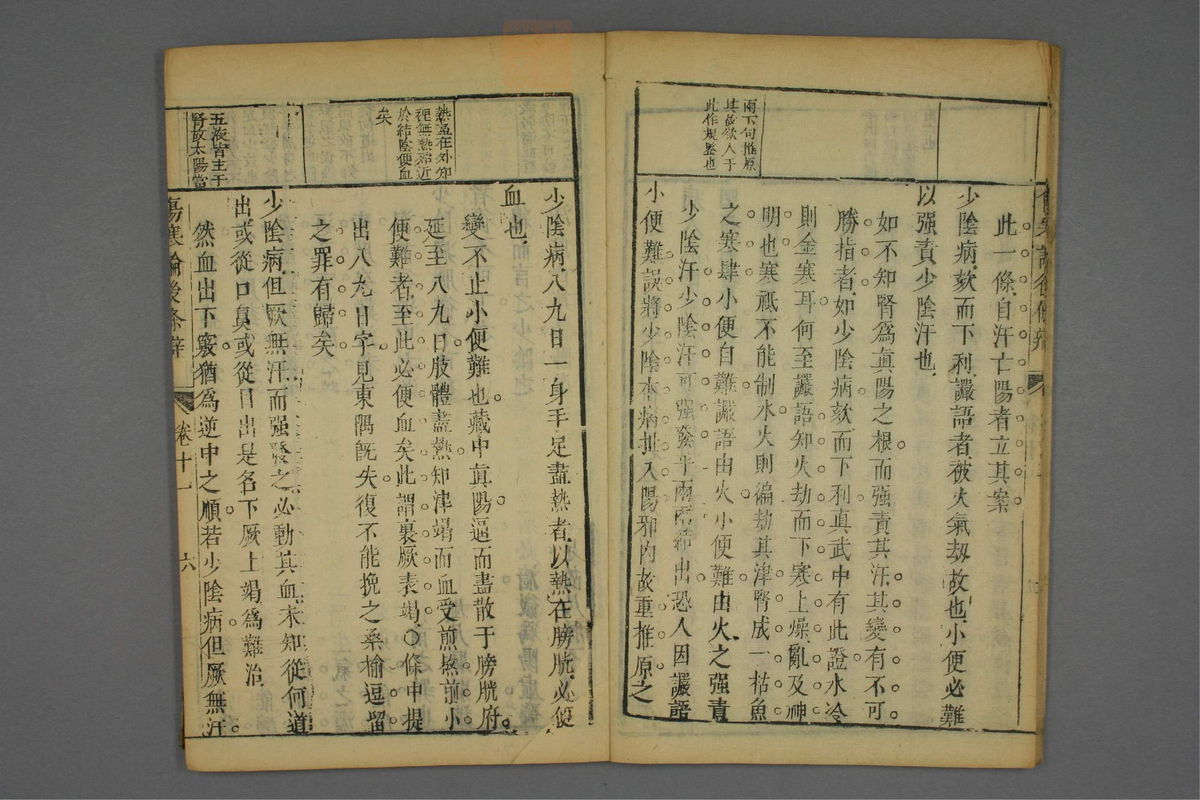 兩下句推原
其故欲人于
此作規鑒也
此一條自汗亡陽者立其案
少陰病欬而下利讝語者被火氣刼故也小便必難
以强責少陰汗也
如不知腎爲眞陽之根而强責其汗其變有不可
勝指者如少陰病欬而下利真武中有此證水冷
則金寒耳何至讝語知火劫而下寒上燥亂及神
明也寒祗不能制水火則徧劫其津腎成一枯魚
之寒肆小便自難讝語由火小便難由火之强責
少陰汗少陰汗可强發乎兩層結出恐人因讝語
小便難誤將少陰本病扯入陽邪內故重推原之
熱逼在外知
裡無熱殆近
於結陰便血
矣
五液皆主于
腎故太陽當
少陰病八九日一身手足盡熱者以熱在膀胱必便
血也
變不止小便難也藏中眞陽逼而盡散于膀胱府
延至八九日肢體盡熱知津竭而血受煎熬前小
便難者至此必便血矣此謂裏厥表竭○條中提
出八九日字見東隅旣失復不能挽之桑榆逗留
之罪有歸矣
少陰病但厥無汗而强發之必動其血未知從何道
出或從口鼻或從目出是名下厥上竭爲難治
然血出下竅猶爲逆中之順若少陰病但厥無汗
傷寒論後條辯
卷十一
六